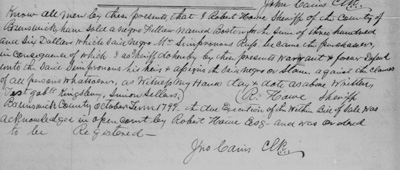 John Cains Clk.
Know all men by these presents that I Robert Howe Sheriff of the County of
Brunswick have sold a negro Fellow named Boston for the sum of three hundred
and Six Dollars which said negro Mr. Simpronius Russ became the purchaser,
in consequence of which I as Sheriff do hereby by these presents Warrant & forever defend
unto the said Simpronius his heirs & assigns the said negro or Slave against the claims
of all persons whatsoever, as Witness my Hand day & date as above Written
Test Kingsbury, Junior Sellers, Rt. Howe Sheriff
Brunswick County October Term 1799 the due Execution of the Within Bill of Sale was
acknowledged in open court by Robert Howe Esq. and was ordered
to be Registered—
Jno Cains Clk